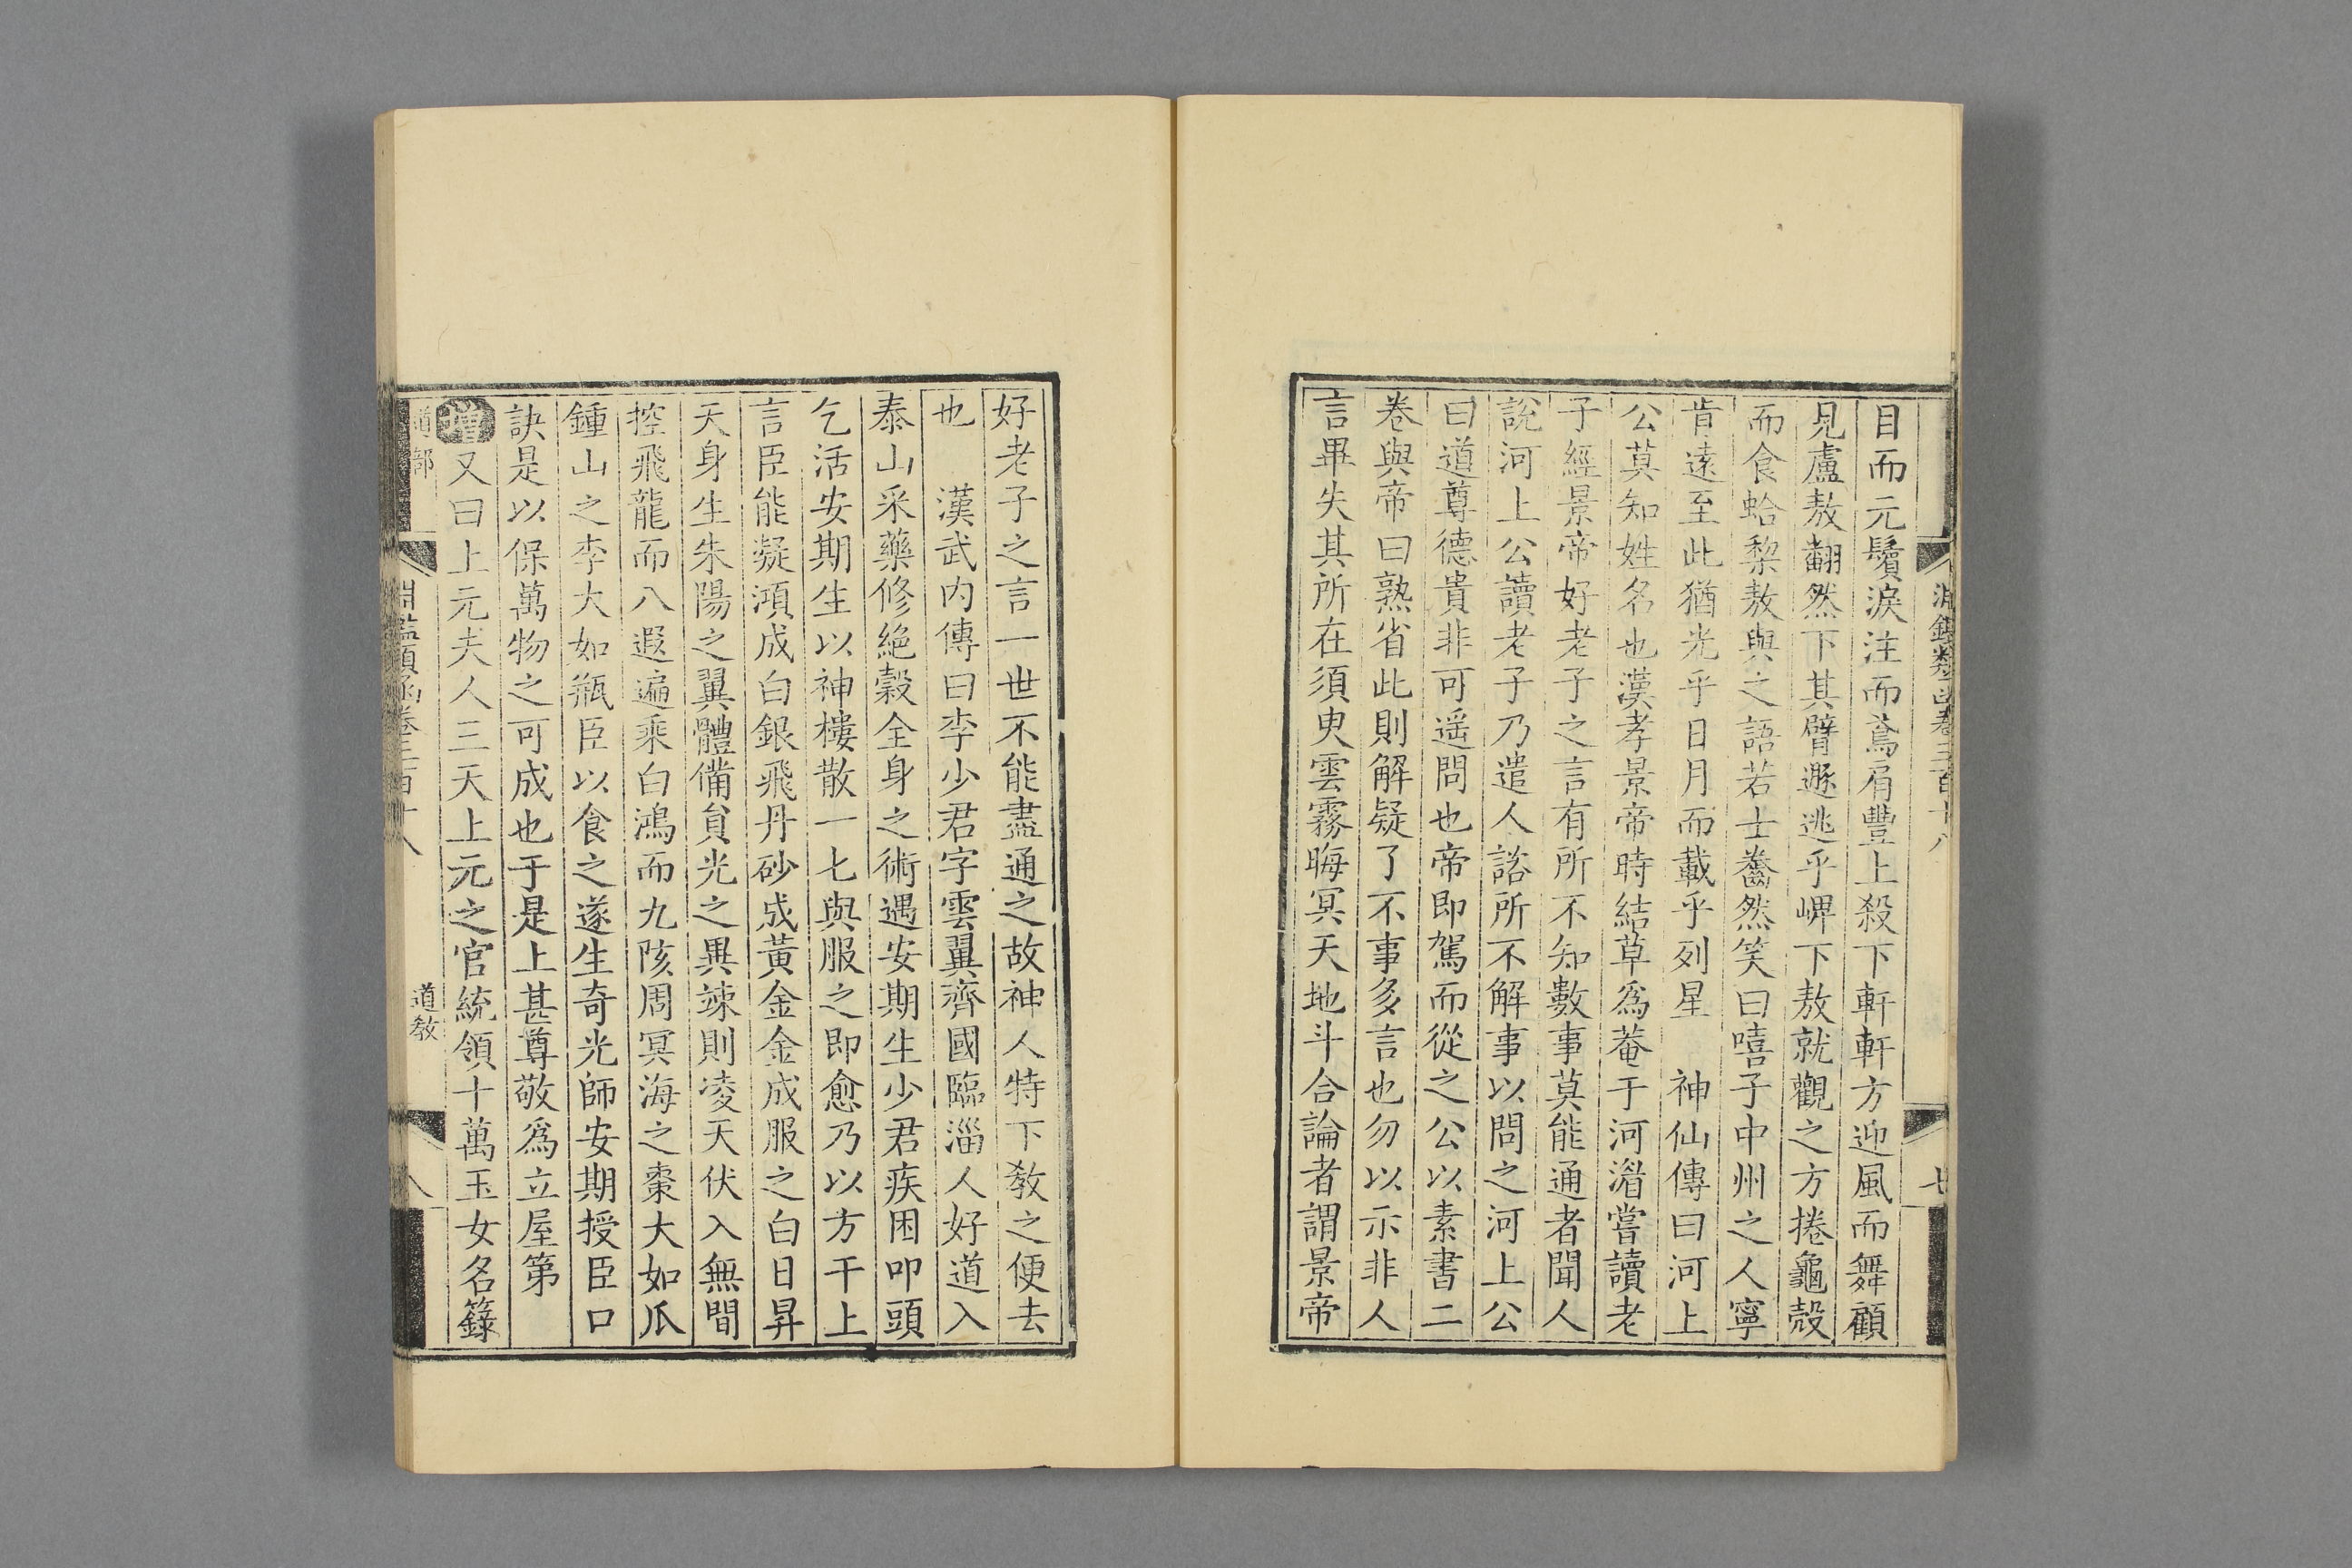 目而元鬢淚注而鳶肩豐上殺下軒軒方迎風而舞顧
見盧敖翻然下其臂遯逃乎崥下敖就觀之方捲龜殼
而食蛤棃敖與之語若士齤然笑曰嘻子中州之人寧
肯遠至此猶光乎日月而載乎列星　神仙傳曰河上
公莫知姓名也漢孝景帝時結草爲菴于河湄嘗讀老
子經景帝好老子之言有所不知數事莫能通者聞人
說河上公讀老子乃遣人諮所不解事以問之河上公
曰道尊德貴非可遥問也帝即駕而從之公以素書二
卷與帝曰熟省此則解疑了不事多言也勿以示非人
言畢失其所在須臾雲霧晦冥天地斗合論者謂景帝
好老子之言一世不能盡通之故神人特下敎之便去
也　漢武內傳曰李少君字雲翼齊國臨淄人好道入
泰山采藥修絶穀全身之術遇安期生少君疾困叩頭
乞活安期生以神樓散一七與服之即愈乃以方干上
言臣能凝澒成白銀飛丹砂成黃金金成服之白日昇
天身生朱陽之翼體備負光之異竦則凌天伏入無間
控飛龍而八遐遍乘白鴻而九陔周冥海之棗大如瓜
鍾山之李大如瓶臣以食之遂生奇光師安期授臣口
訣是以保萬物之可成也于是上甚尊敬爲立屋第
增又曰上元夫人三天上元之官統領十萬玉女名籙
道部 淵鑑類函卷三百十八 道敎 八